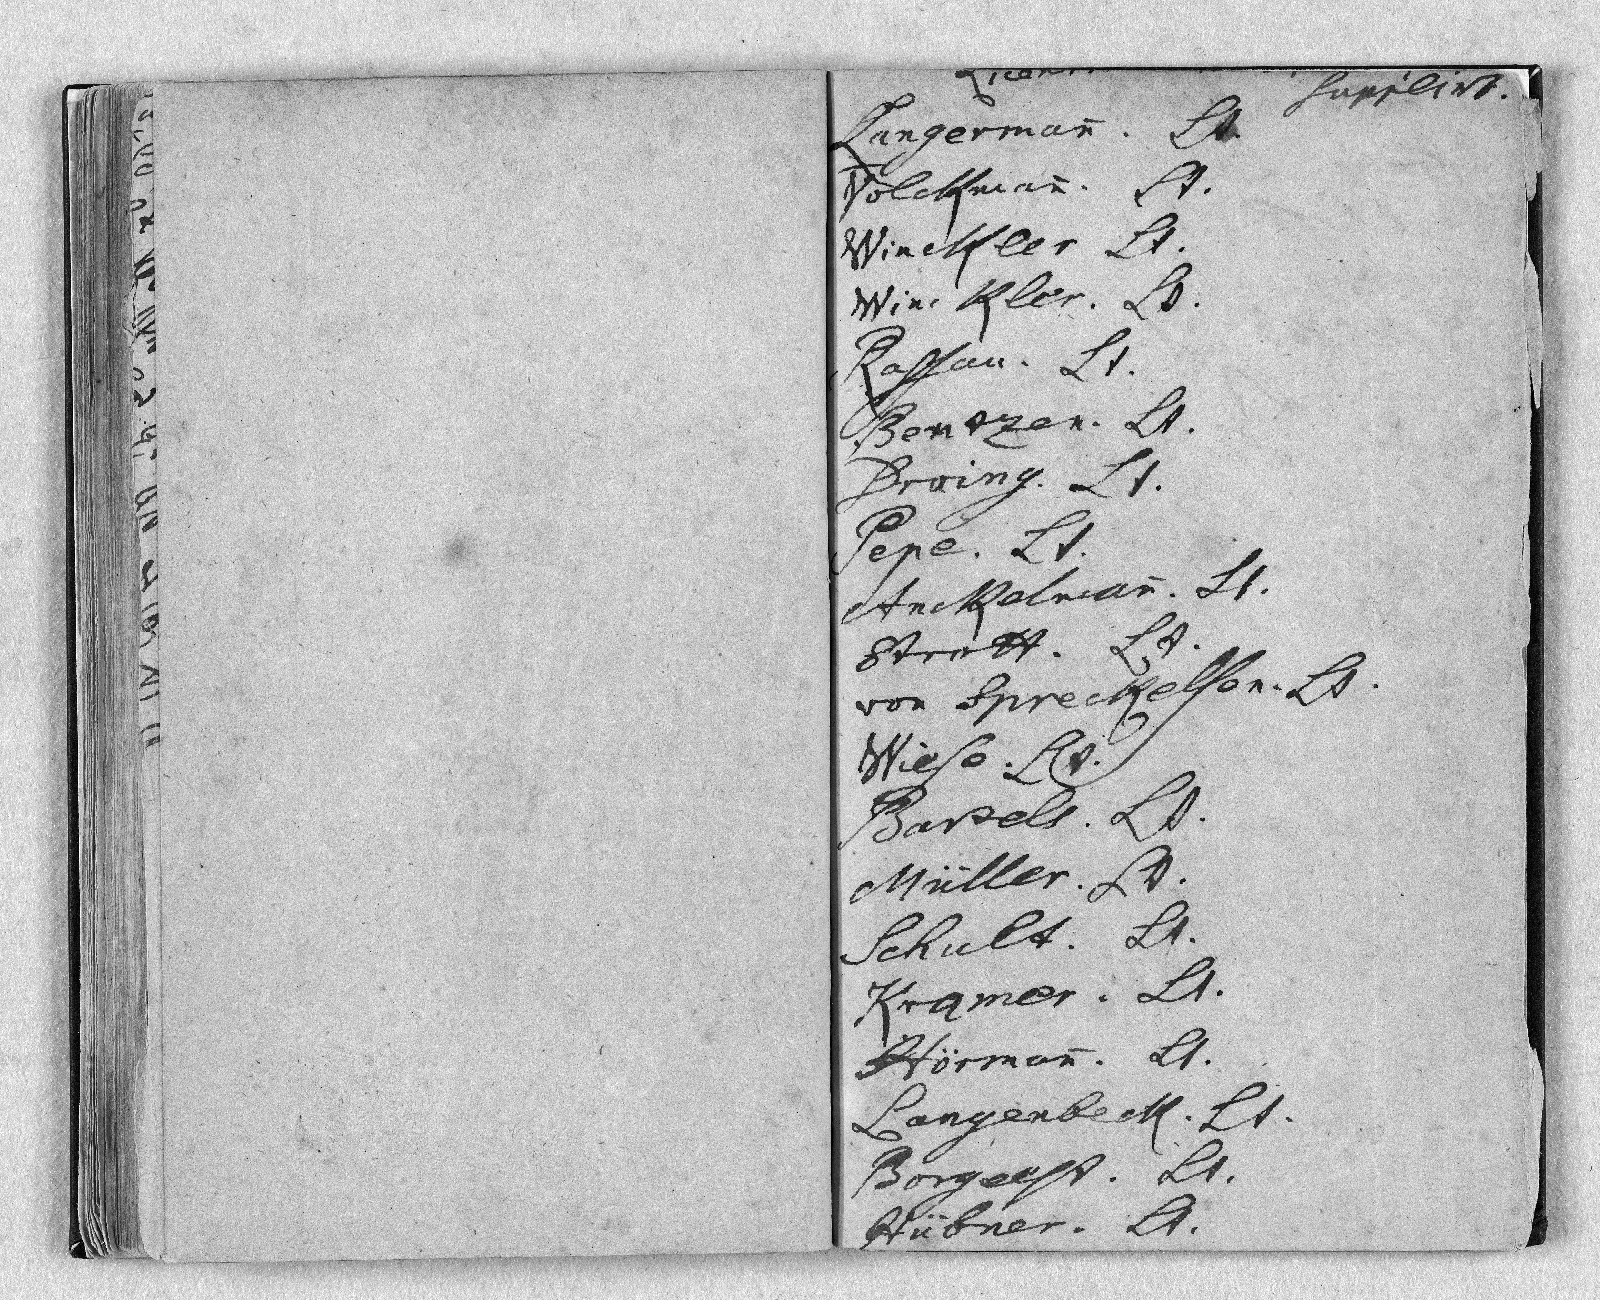 Langermañ. Lt.
Volckmañ. Lt.
Winckler Lt.
Winckler. Lt.
Lt.
Bentzen. Lt.
Lt.
Pepe. Lt.
Anckelmañ. Lt.
Stratt. Lt.
von Spreckelsen. Lt.
Wiese. Lt.
Bartels. Lt.
Müller. Lt.
Schult. Lt.
Kramer. Lt.
Hörmañ. Lt.
Langenbeck. Lt.
Borgeest. Lt.
Hübner. Lt.